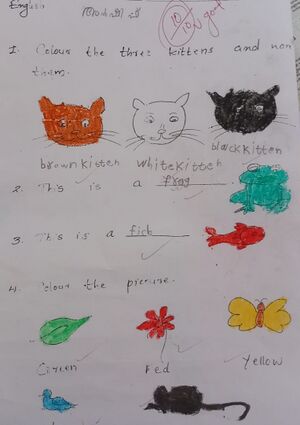 English
10/10 good
1. Colour the three kittens and
them.
brown kitten white kitten black kitten
2. This is a frog
3. This is a fish
4. Colour the picture.
Green Red Yellow